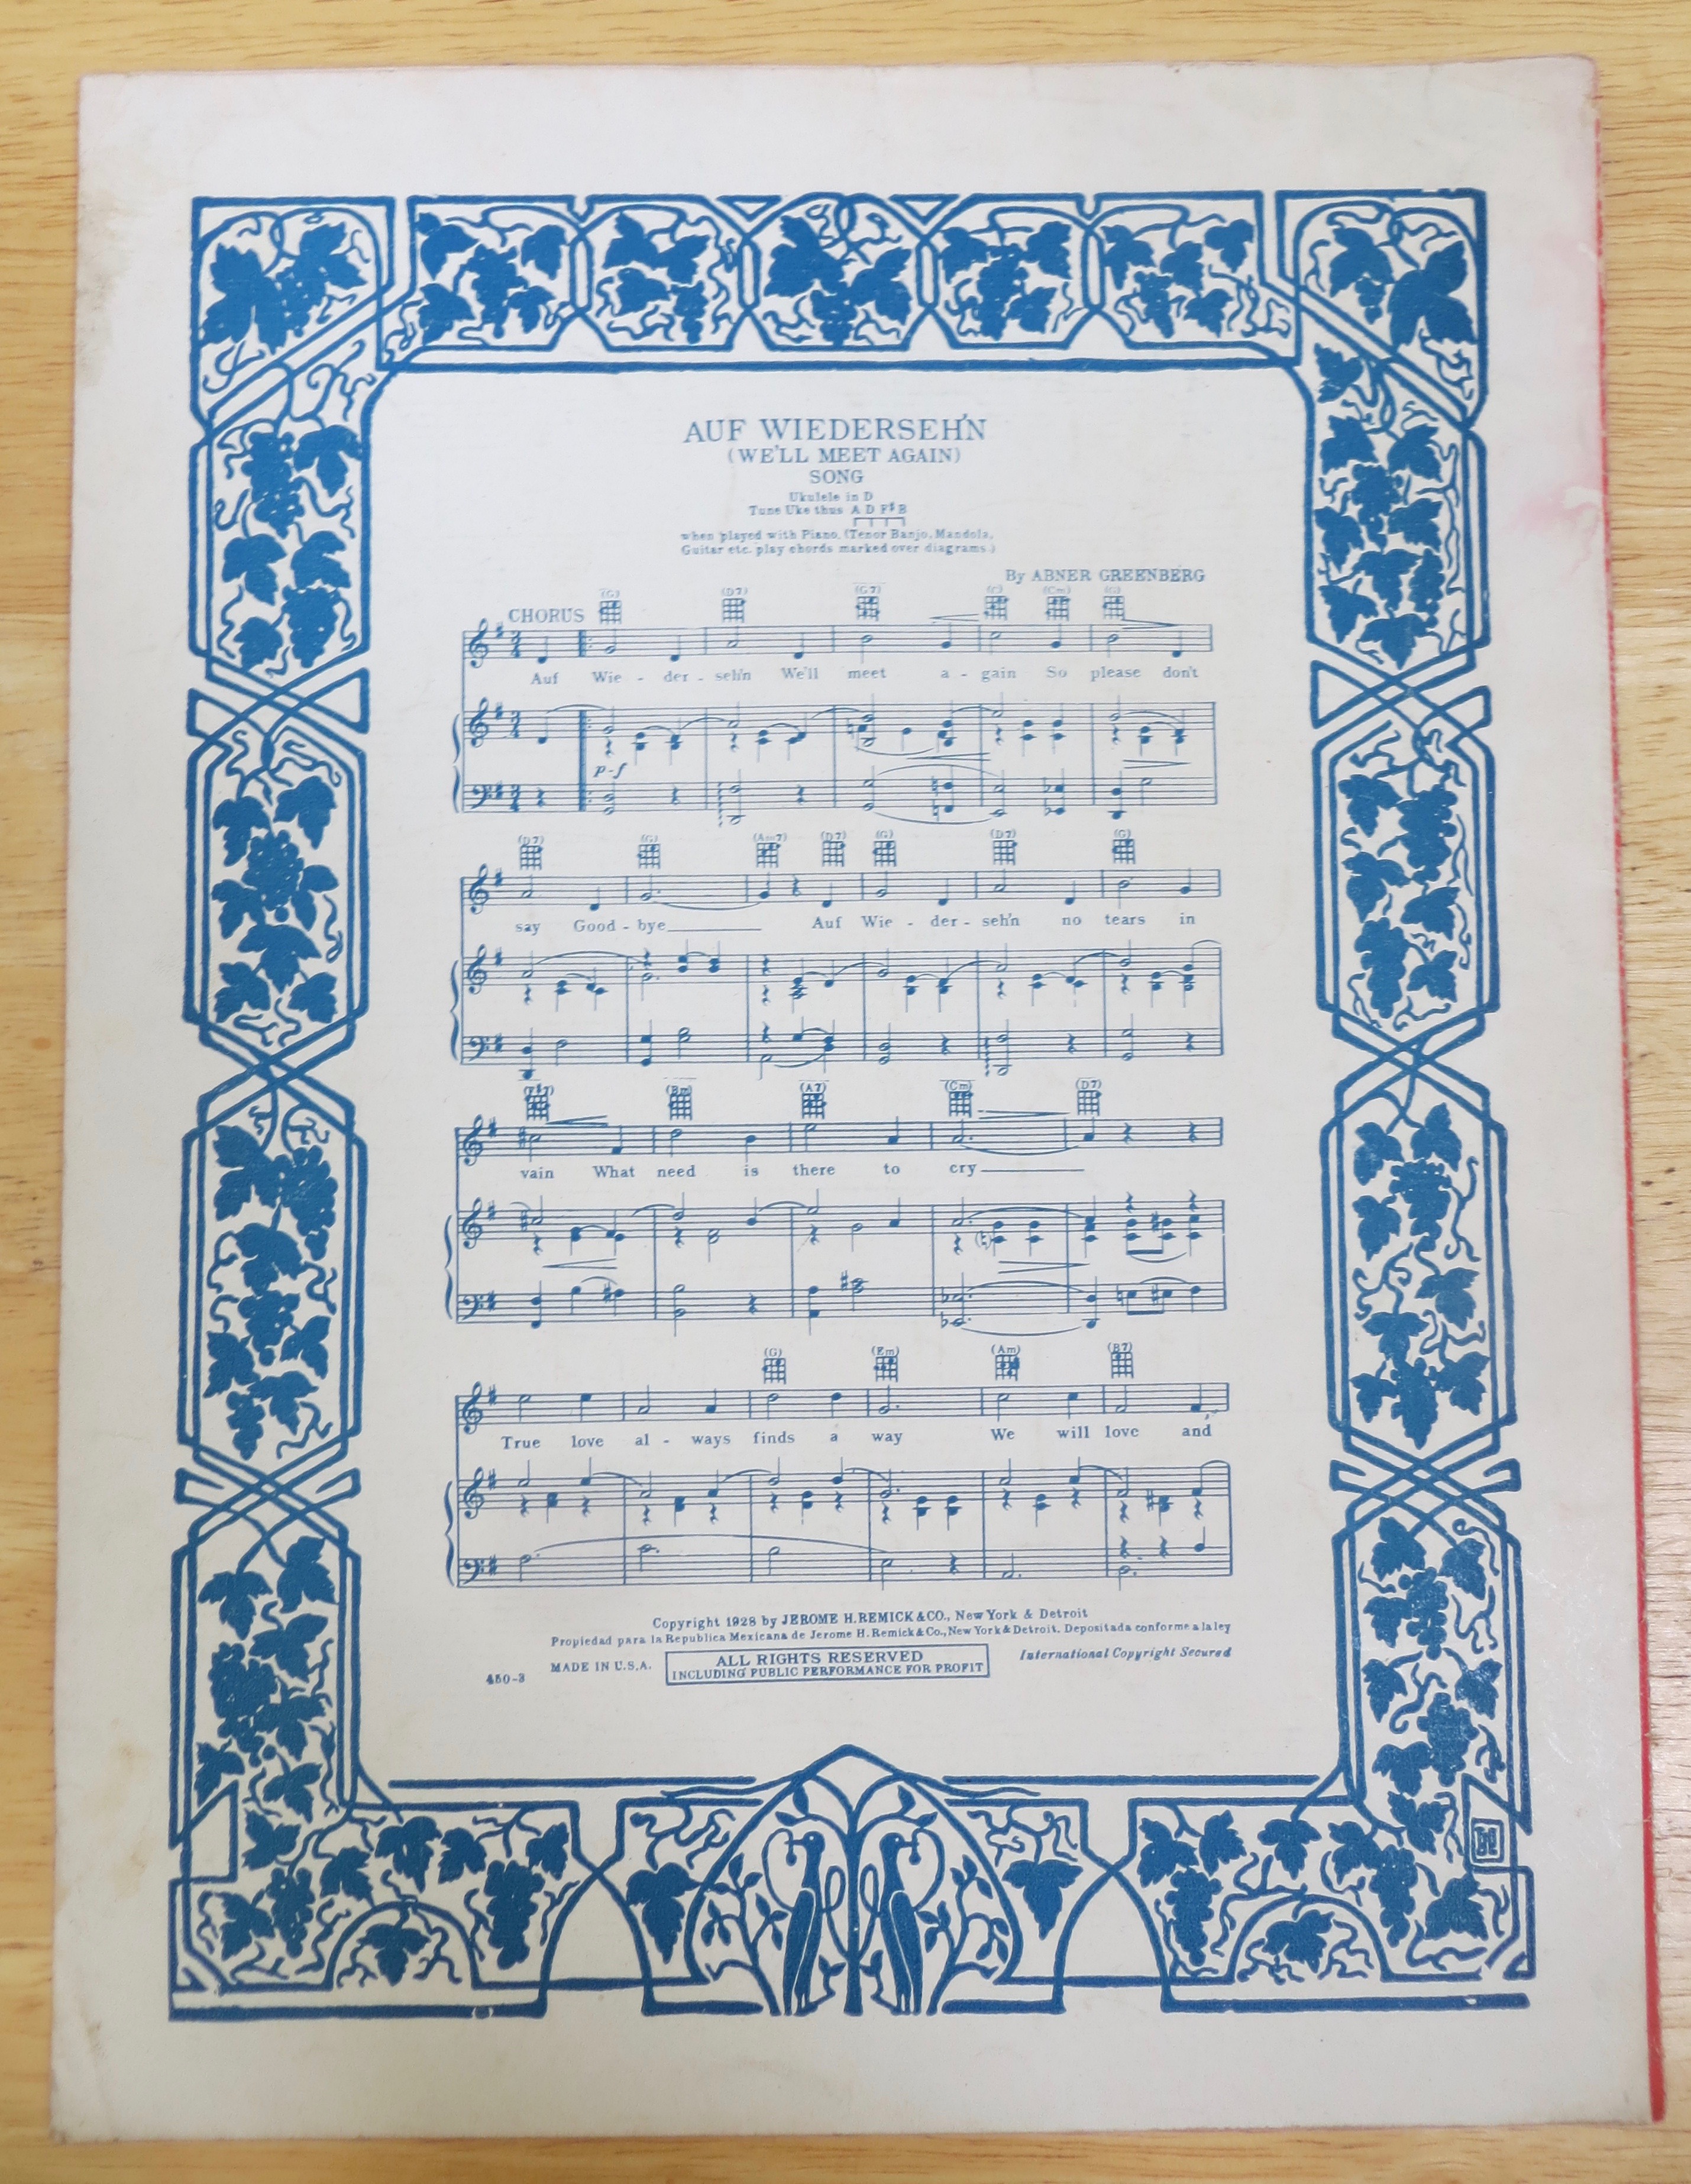 AUF WIEDERSEH'N
(WE'LL MEET AGAIN)
SONG
Ukulele in D
Tune Uke thus A D F♯ B
when played with Piano. (Tenor Banjo, Mandola,
Guitar etc. play chords marked over diagrams.)
By ABNER GREENBERG
(G) (D7) (G7) (C) (Cm) (G)
CHORUS
Auf Wie - der - seh'n We'll meet a - gain So please don't
p-f
(D7) (G) (Am7) (D7) (G) (D7) (G)
say Good - bye Auf Wie - der - seh'n no tears in
(F♯7) (Bm) (A7) (Cm) (D7)
vain What need is there to cry
(G) (Em) (Am) (B7)
True love al - ways finds a way We will love and
Copyright 1928 by JEROME H. REMICK & CO., New York & Detroit
Propiedad para la Republica Mexicana de Jerome H. Remick & Co., New York & Detroit. Depositada conforme a la ley
450-3 MADE IN U.S.A. ALL RIGHTS RESERVED International Copyright Secured
INCLUDING PUBLIC PERFORMANCE FOR PROFIT